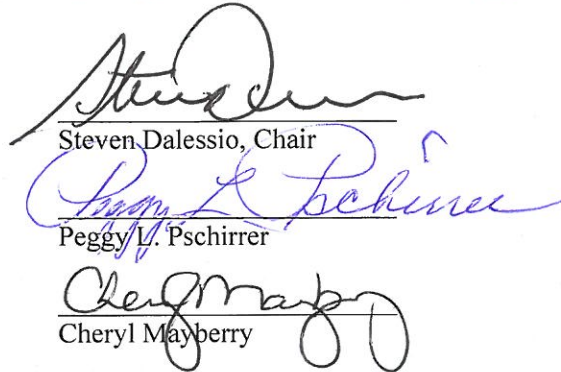 Steven Dalessio, Chair
Peggy L. Pschirrer
Peggy L. Pschirrer
Cheryl Mayberry
Cheryl Mayberry